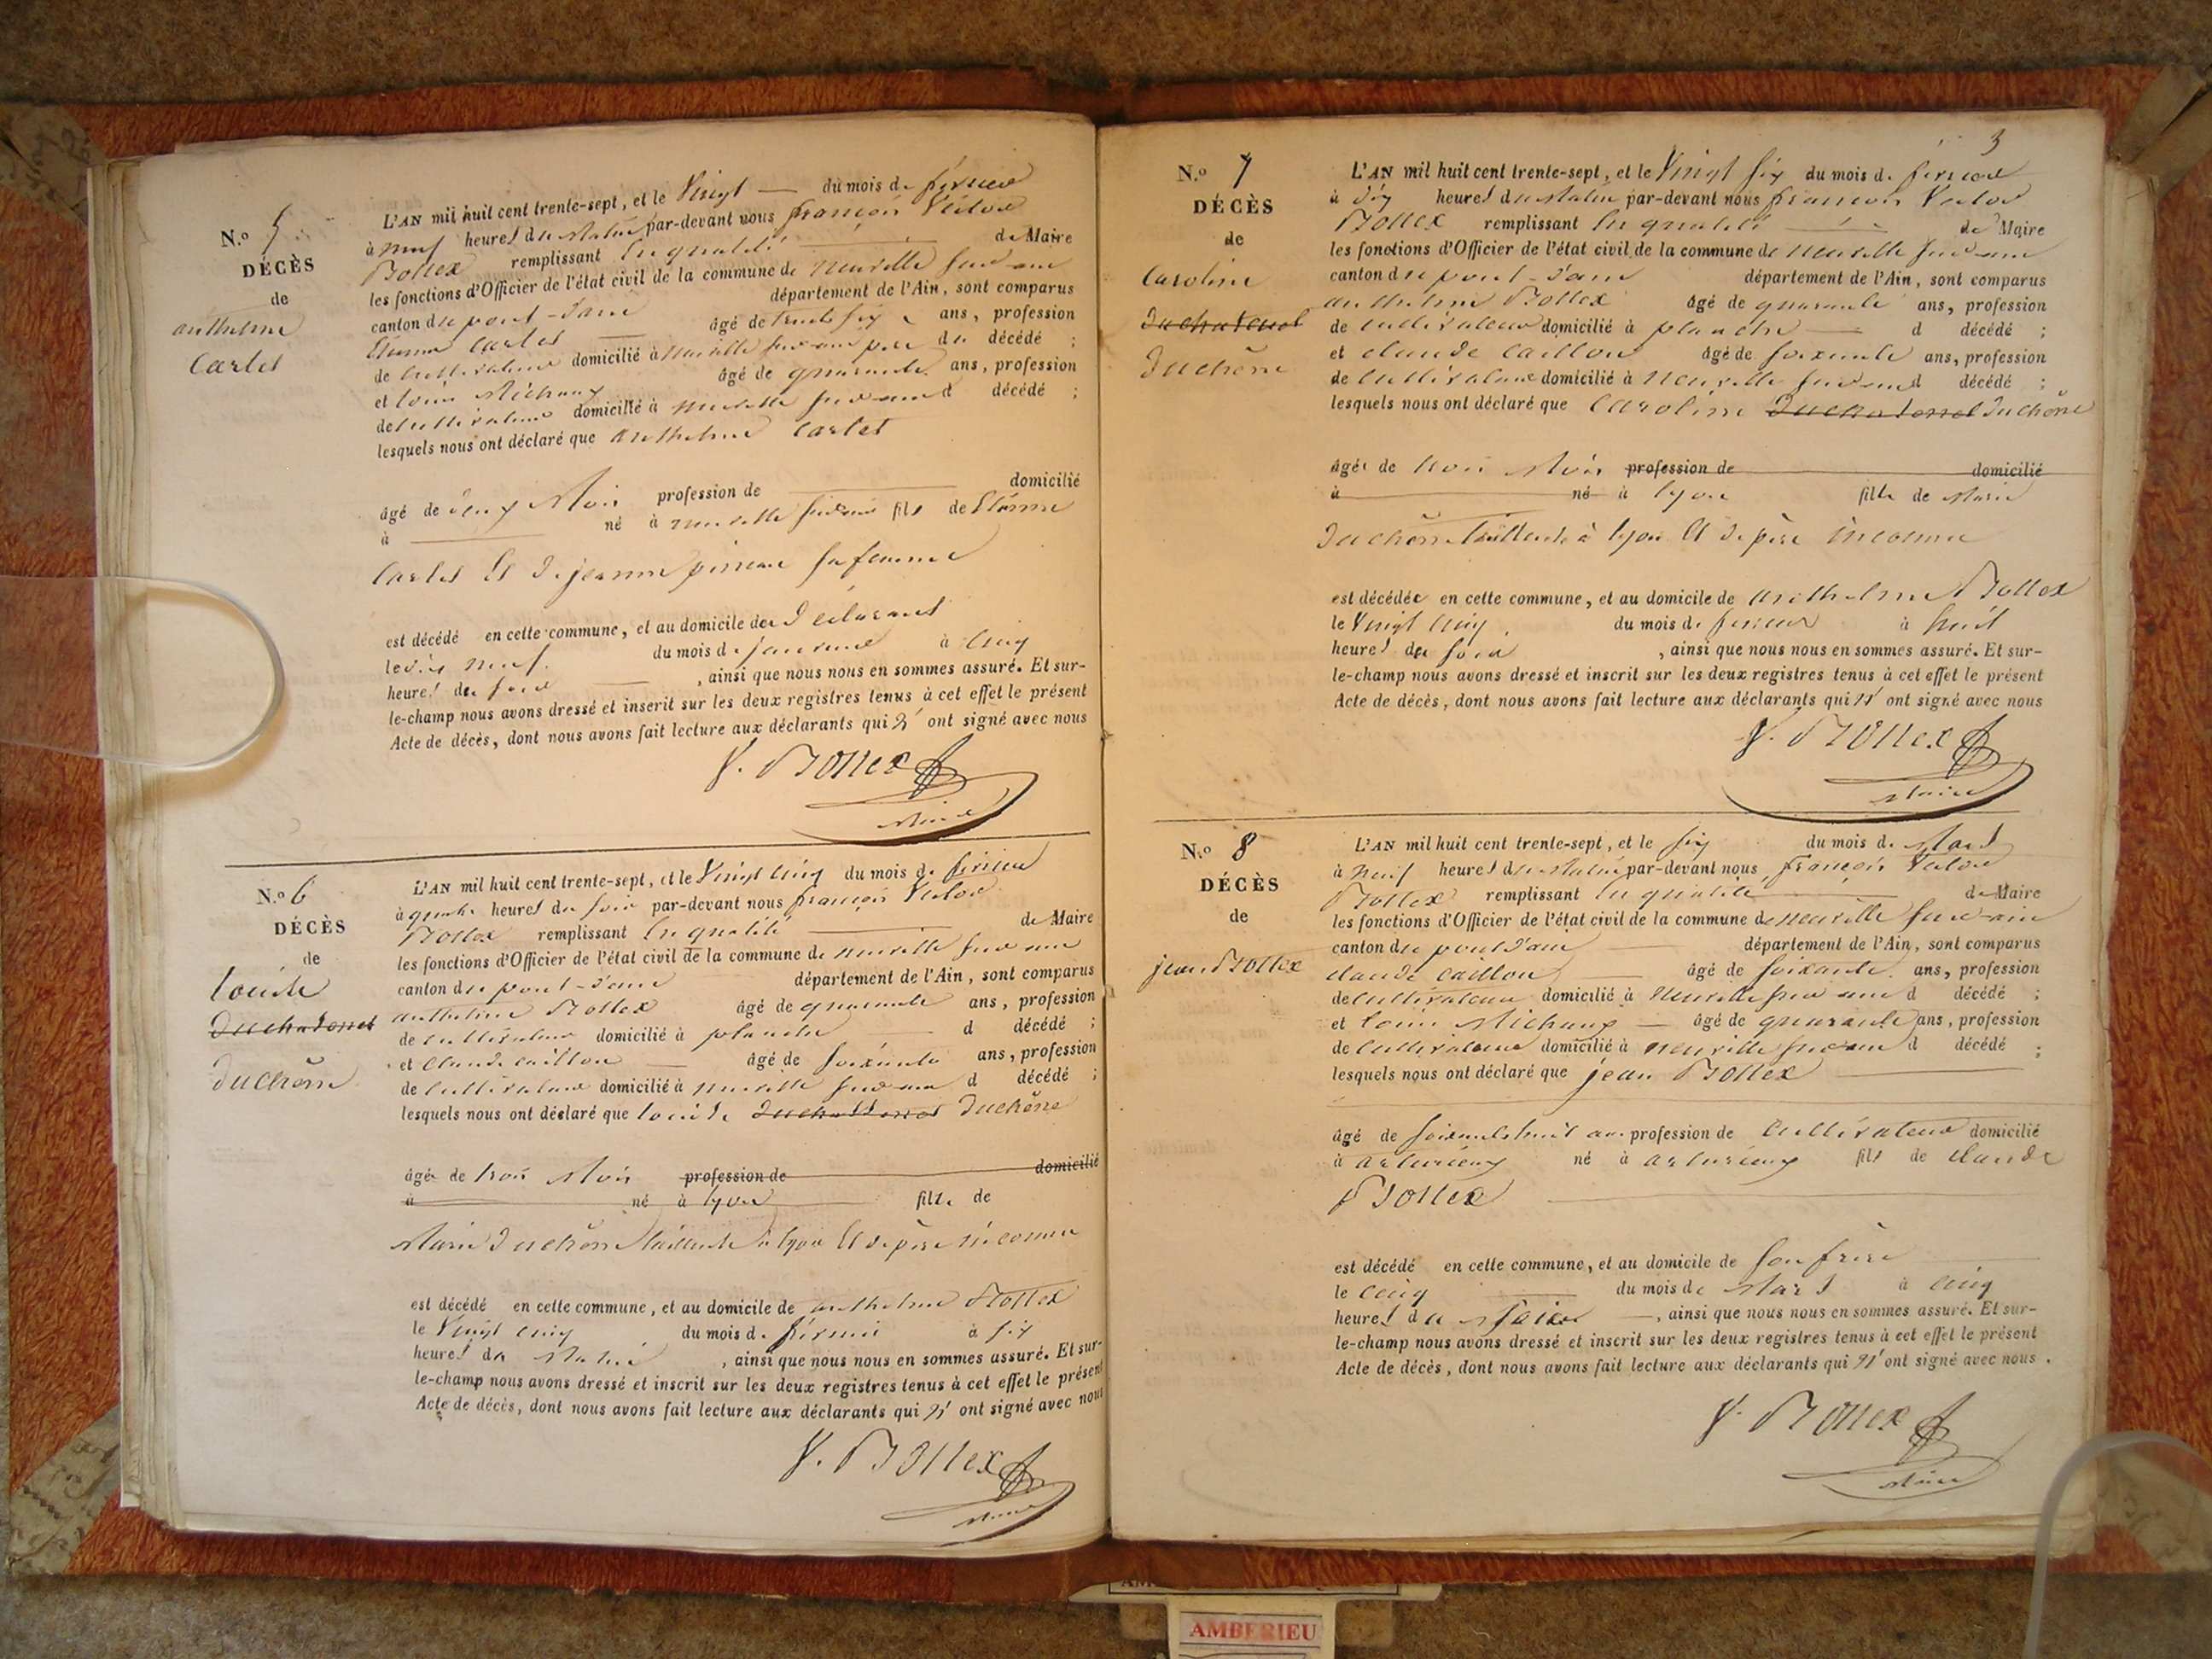 N.º 5
DÉCÈS
de
anthelme
Carlet
L'AN mil huit cent trente-sept, et le Vingt du mois de février
à neuf heures du Matin par-devant nous françois Victor
Bollex remplissant En qualité de Maire
les fonctions d'Officier de l'état civil de la commune de neuville sur ain
canton du pont-d'ain département de l'Ain, sont comparus
Etienne Carlet âgé de trente six ans, profession
de Cultivateur domicilié à neuville sur ain père du décédé ;
et louis Michaux âgé de quarante ans, profession
de Cultivateur domicilié à neuville sur ain d décédé ;
lesquels nous ont déclaré que anthelme Carlet
âgé de deux Mois profession de domicilié
à né à neuville sur ain fils de Etienne
Carlet Et de jeanne sa femme
est décédé en cette commune, et au domicile du Déclarant
le dix neuf du mois de à Cinq
heures du soir , ainsi que nous nous en sommes assuré. Et sur-
le-champ nous avons dressé et inscrit sur les deux registres tenus à cet effet le présent
Acte de décès, dont nous avons fait lecture aux déclarants qui n' ont signé avec nous
V. Bollex
Maire
N.º 6
DÉCÈS
de
Louise
duchêne
L'AN mil huit cent trente-sept, et le Vingt Cinq du mois de février
à quatre heures du soir par-devant nous françois Victor
Bollex remplissant En qualité de Maire
les fonctions d'Officier de l'état civil de la commune de neuville sur ain
canton du pont-d'ain département de l'Ain, sont comparus
anthelme Bollex âgé de quarante ans, profession
de cultivateur domicilié à planche d décédé ;
et Claude Caillou âgé de soixante ans, profession
de Cultivateur domicilié à neuville sur ain d décédé ;
lesquels nous ont déclaré que Louise duchêne
âgée de trois Mois profession de domicilié
à né à lyon fille de
Marie duchêne à lyon Et de père inconnu
est décédé en cette commune, et au domicile de anthelme Bollex
le Vingt cinq du mois de février à six
heures du Matin , ainsi que nous nous en sommes assuré. Et sur-
le-champ nous avons dressé et inscrit sur les deux registres tenus à cet effet le présent
Acte de décès, dont nous avons fait lecture aux déclarants qui n' ont signé avec nous
V. Bollex
Maire
3
N.º 7
DÉCÈS
de
Caroline
duchêne
L'AN mil huit cent trente-sept, et le Vingt six du mois de février
à dix heures du Matin par-devant nous françois Victor
Bollex remplissant En qualité de Maire
les fonctions d'Officier de l'état civil de la commune de neuville sur ain
canton du pont-d'ain département de l'Ain, sont comparus
anthelme Bollex âgé de quarante ans, profession
de Cultivateur domicilié à planche d décédé ;
et claude Caillou âgé de soixante ans, profession
de Cultivateur domicilié à neuville sur ain d décédé ;
lesquels nous ont déclaré que Caroline duchêne
âgée de trois Mois profession de domicilié
à né à lyon fille de Marie
duchêne à lyon Et de père inconnu
est décédée en cette commune, et au domicile de anthelme Bollex
le Vingt Cinq du mois de février à huit
heures du soir , ainsi que nous nous en sommes assuré. Et sur-
le-champ nous avons dressé et inscrit sur les deux registres tenus à cet effet le présent
Acte de décès, dont nous avons fait lecture aux déclarants qui n' ont signé avec nous
V. Bollex
Maire
N.º 8
DÉCÈS
de
jean Bollex
L'AN mil huit cent trente-sept, et le six du mois de Mars
à neuf heures du Matin par-devant nous françois Victor
Bollex remplissant En qualité de Maire
les fonctions d'Officier de l'état civil de la commune de neuville sur ain
canton du pont d'ain département de l'Ain, sont comparus
claude Caillou âgé de soixante ans, profession
de Cultivateur domicilié à neuville sur ain d décédé ;
et louis Michaux âgé de quarante ans, profession
de Cultivateur domicilié à neuville sur ain d décédé ;
lesquels nous ont déclaré que jean Bollex
âgé de soixante huit ans profession de Cultivateur domicilié
à né à fils de claude
Bollex
est décédé en cette commune, et au domicile de son frère
le cinq du mois de Mars à cinq
heures du , ainsi que nous nous en sommes assuré. Et sur-
le-champ nous avons dressé et inscrit sur les deux registres tenus à cet effet le présent
Acte de décès, dont nous avons fait lecture aux déclarants qui n' ont signé avec nous.
V. Bollex
Maire
AMBERIEU